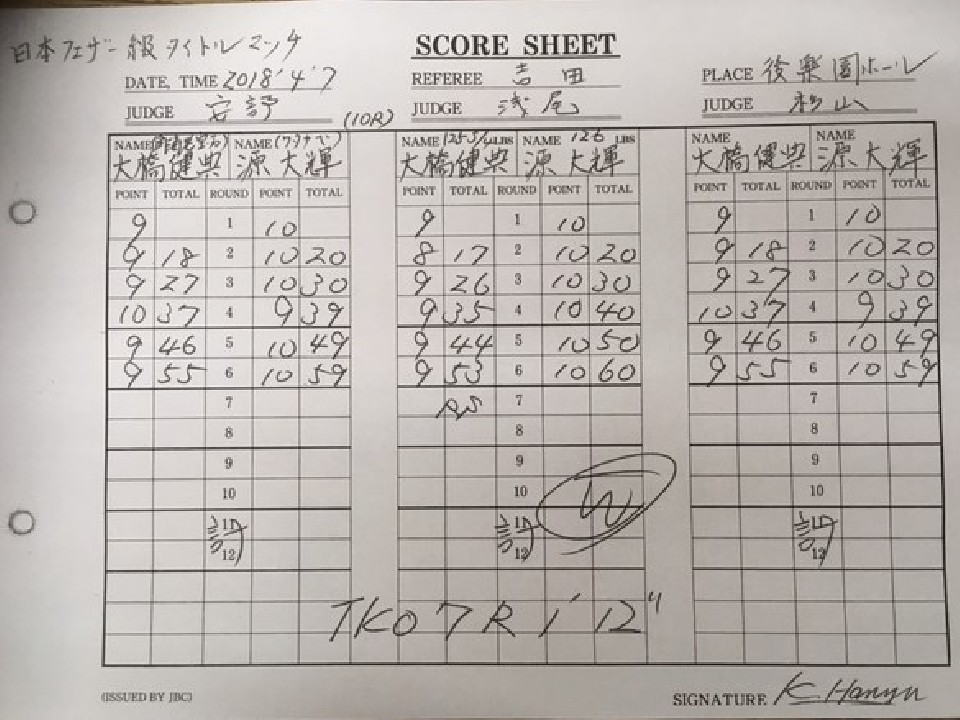 日本フェザー級タイトルマッチ
SCORE SHEET
DATE, TIME 2018'4'7 REFEREE 吉田 PLACE 後楽園ホール
JUDGE 安部 (10R) JUDGE 浅尾 JUDGE 杉山
NAME NAME (ワタナベ) NAME (125 3/4 LBS NAME 126 LBS NAME NAME
大橋健典 源大輝 大橋健典 源大輝 大橋健典 源大輝
POINT TOTAL ROUND POINT TOTAL POINT TOTAL ROUND POINT TOTAL POINT TOTAL ROUND POINT TOTAL
9 1 10 9 1 10 9 1 10
9 18 2 10 20 8 17 2 10 20 9 18 2 10 20
9 27 3 10 30 9 26 3 10 30 9 27 3 10 30
10 37 4 9 39 9 35 4 10 40 10 37 4 9 39
9 46 5 10 49 9 44 5 10 50 9 46 5 10 49
9 55 6 10 59 9 53 6 10 60 9 55 6 10 59
7 7 7
8 8 8
9 9 9
10 10 W 10
11 11 11
12 12 12
TKO 7R 1'12"
(ISSUED BY JBC) SIGNATURE K Hanyu